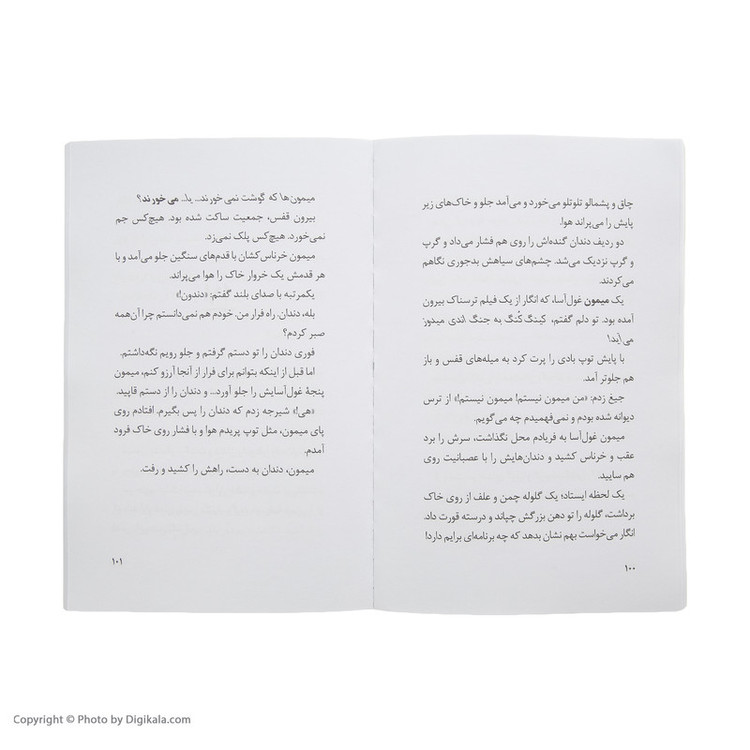 چاق و پشمالو تلوتلو می‌خورد و می‌آمد جلو و خاک‌های زیر
پایش را می‌پراند هوا.
دو ردیف دندان گنده‌اش را روی هم فشار می‌داد و گرپ
و گرپ نزدیک می‌شد. چشم‌های سیاهش بدجوری نگاهم
می‌کردند.
یک میمون غول‌آسا، که انگار از یک فیلم ترسناک بیرون
آمده بود. تو دلم گفتم، کینگ کُنگ به جنگ
می‌آید!
با پایش توپ بادی را پرت کرد به میله‌های قفس و باز
هم جلوتر آمد.
جیغ زدم: «من میمون نیستم! میمون نیستم!» از ترس
دیوانه شده بودم و نمی‌فهمیدم چه می‌گویم.
میمون غول‌آسا به فریادم محل نگذاشت، سرش را برد
عقب و خرناس کشید و دندان‌هایش را با عصبانیت روی
هم سایید.
یک لحظه ایستاد؛ یک گلوله چمن و علف از روی خاک
برداشت، گلوله را تو دهن بزرگش چپاند و درسته قورت داد.
انگار می‌خواست بهم نشان بدهد که چه برنامه‌ای برایم دارد!
۱۰۰
میمون‌ها که گوشت نمی‌خورند... یا... می‌خورند؟
بیرون قفس، جمعیت ساکت شده بود. هیچ‌کس جم
نمی‌خورد. هیچ‌کس پلک نمی‌زد.
میمون خرناس‌کشان با قدم‌های سنگین جلو می‌آمد و با
هر قدمش یک خروار خاک را هوا می‌پراند.
یکمرتبه با صدای بلند گفتم: «دندون!»
بله، دندان. راه فرار من. خودم هم نمی‌دانستم چرا آن‌همه
صبر کردم؟
فوری دندان را تو دستم گرفتم و جلو رویم نگه‌داشتم.
اما قبل از اینکه بتوانم برای فرار از آنجا آرزو کنم، میمون
پنجهٔ غول‌آسایش را جلو آورد... و دندان را از دستم قاپید.
«هی!» شیرجه زدم که دندان را پس بگیرم. افتادم روی
پای میمون، مثل توپ پریدم هوا و با فشار روی خاک فرود
آمدم.
میمون، دندان به دست، راهش را کشید و رفت.
۱۰۱
Copyright © Photo by Digikala.com